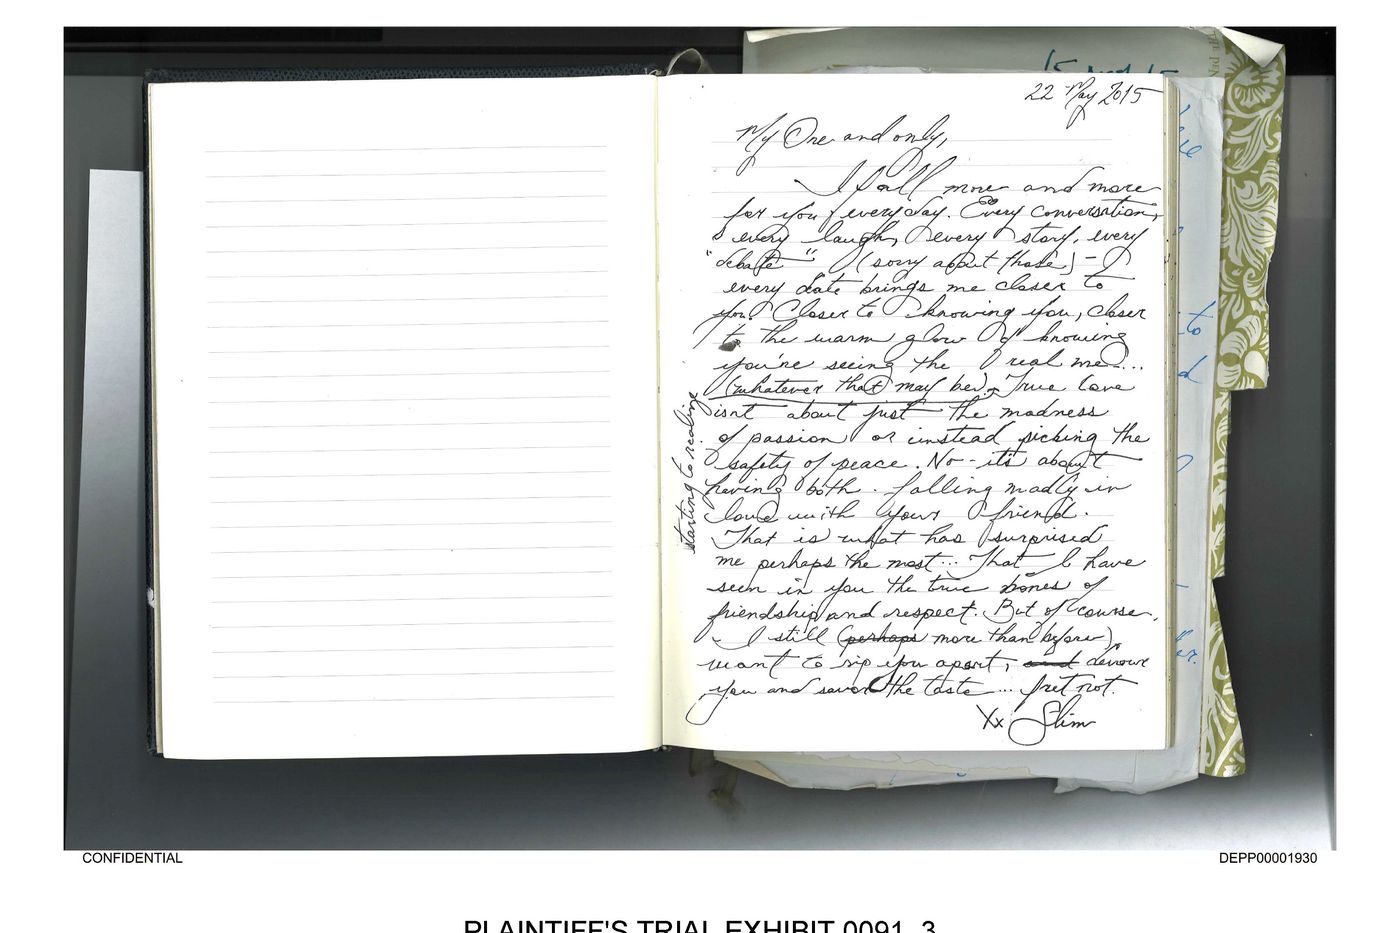 22 May 2015
My One and only,
I fall more and more
for you everyday. Every conversation,
every laugh, every story, every
"debate" (sorry about those) -
every date brings me closer to
you. Closer to knowing you, closer
to the warm glow of knowing
you're seeing the real me...
(whatever that may be). True love
isnt about just the madness
of passion or instead picking the
safety of peace. No - it's about
having both. falling madly in
love with your friend.
That is what has surprised
me perhaps the most... That I have
seen in you the true bones of
friendship and respect. But of course,
I still (perhaps more than before)
want to rip you apart, and devour
you and savor the taste... fret not.
Xx Slim
starting to realize
to
d
CONFIDENTIAL
DEPP00001930
PLAINTIFF'S TRIAL EXHIBIT 0091_3